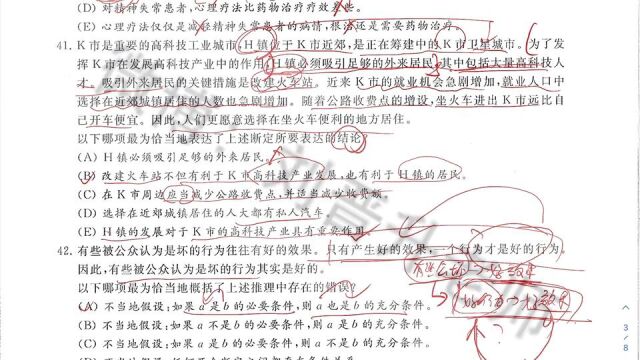 (D) 对精神失常患者,心理疗法比药物治疗疗效
(E) 心理疗法仅仅是减轻精神失常患者的病情,根治还是需要药物治疗。
41. K市是重要的高科技工业城市,H镇位于K市近郊,是正在筹建中的K市卫星城市。为了发
挥K市在发展高科技产业中的作用,H镇必须吸引足够的外来居民,其中包括大量高科技人
才。吸引外来居民的关键措施是改建火车站。近来K市的就业机会急剧增加,就业人口中
选择在近郊城镇居住的人数也急剧增加。随着公路收费点的增设,坐火车进出K市远比自
己开车便宜。因此,人们更愿意选择在坐火车便利的地方居住。
以下哪项最为恰当地表达了上述断定所要表达的结论?
(A) H镇必须吸引足够的外来居民。
(B) 改建火车站不但有利于K市高科技产业发展,也有利于H镇的居民。
(C) 在K市周边应当减少公路收费点,并适当减少收费额。
(D) 选择在近郊城镇居住的人大都有私人汽车。
(E) H镇的发展对于K市的高科技产业具有重要作用。
42. 有些被公众认为是坏的行为往往有好的效果。只有产生好的效果,一个行为才是好的行为。
因此,有些被公众认为是坏的行为其实是好的。
以下哪项最为恰当地概括了上述推理中存在的错误?
(A) 不当地假设:如果a是b的必要条件,则a也是b的充分条件。
(B) 不当地假设:如果a不是b的必要条件,则a是b的充分条件。
3/8